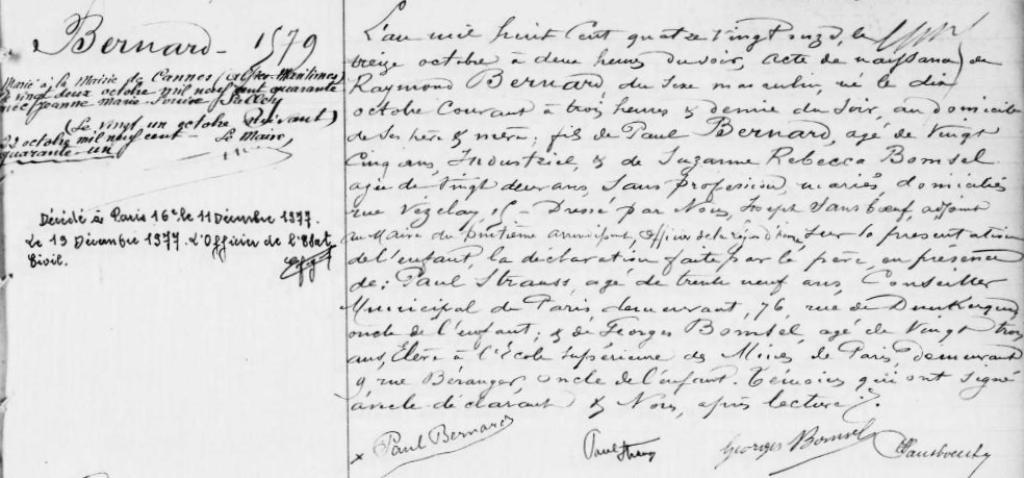 Bernard - 1579
Marié à la Mairie de Cannes (Alpes-Maritimes)
le vingt deux octobre mil neuf cent quarante
Jeanne Marie Louise
(Le vingt un octobre (suivant)
octobre mil neuf cent - Le Maire,
quarante-un
Décédé à Paris 16e le 11 Décembre 1977.
Le 19 Décembre 1977. L'Officier de l'Etat
Civil.
L'an mil huit Cent quatre vingt onze, le
treize octobre à deux heures du soir, acte de naissance de
Raymond Bernard, du Sexe masculin, né le dix
octobre Courant à trois heures & demie du Soir, au domicile
de Ses père & mère; fils de Paul Bernard, agé de Vingt
Cinq ans, Industriel, & de Suzanne Rebecca Bomsel
agée de Vingt deux ans, Sans profession, mariés, domiciliés
rue Vézelay, - Dressé par Nous, Joseph Sansboeuf, adjoint
au Maire du huitième arrondissement, Officier de la Légion d'honneur, Sur la présentation
de l'enfant, la déclaration faite par le père, en présence
de: Paul Strauss, agé de trente neuf ans, Conseiller
Municipal de Paris, demeurant, 76, rue de Dunkerque,
oncle de l'enfant; & de Georges Bomsel, agé de Vingt trois
ans, Elève à l'Ecole Supérieure des Mines de Paris, demeurant
9, rue Béranger, oncle de l'enfant. Témoins qui ont Signé
avec le déclarant & Nous, après lecture ./.
x Paul Bernard Paul Strauss Georges Bomsel J Sansboeuf